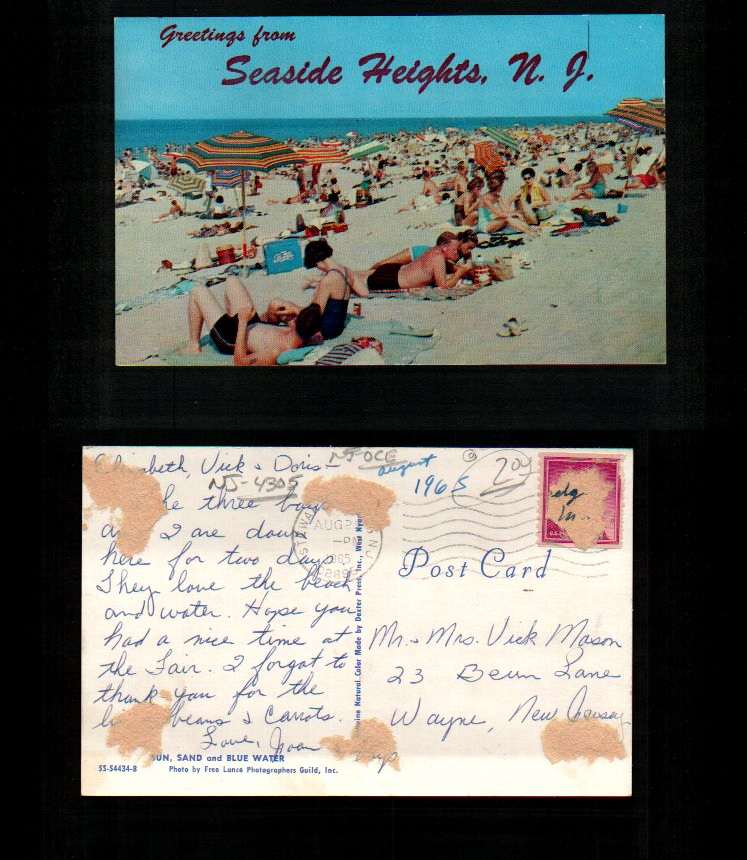 Greetings from
Seaside Heights, N. J.
Elizabeth, Vick & Doris-
NJ-OCE
NJ-4305
august
1965
204
he three boys
and I are down
here for two days.
They love the beach
and water. Hope you
had a nice time at
the Fair. I forgot to
thank you for the
beans & carrots.
Love, Joan
AUG
PM
1965
N J
Post Card
Mr. & Mrs. Vick Mason
23 Lane
Wayne, New Jersey
Natural Color Made by Dexter Press, Inc., West Nyack
UN, SAND and BLUE WATER
SS-54434-B
Photo by Free Lance Photographers Guild, Inc.